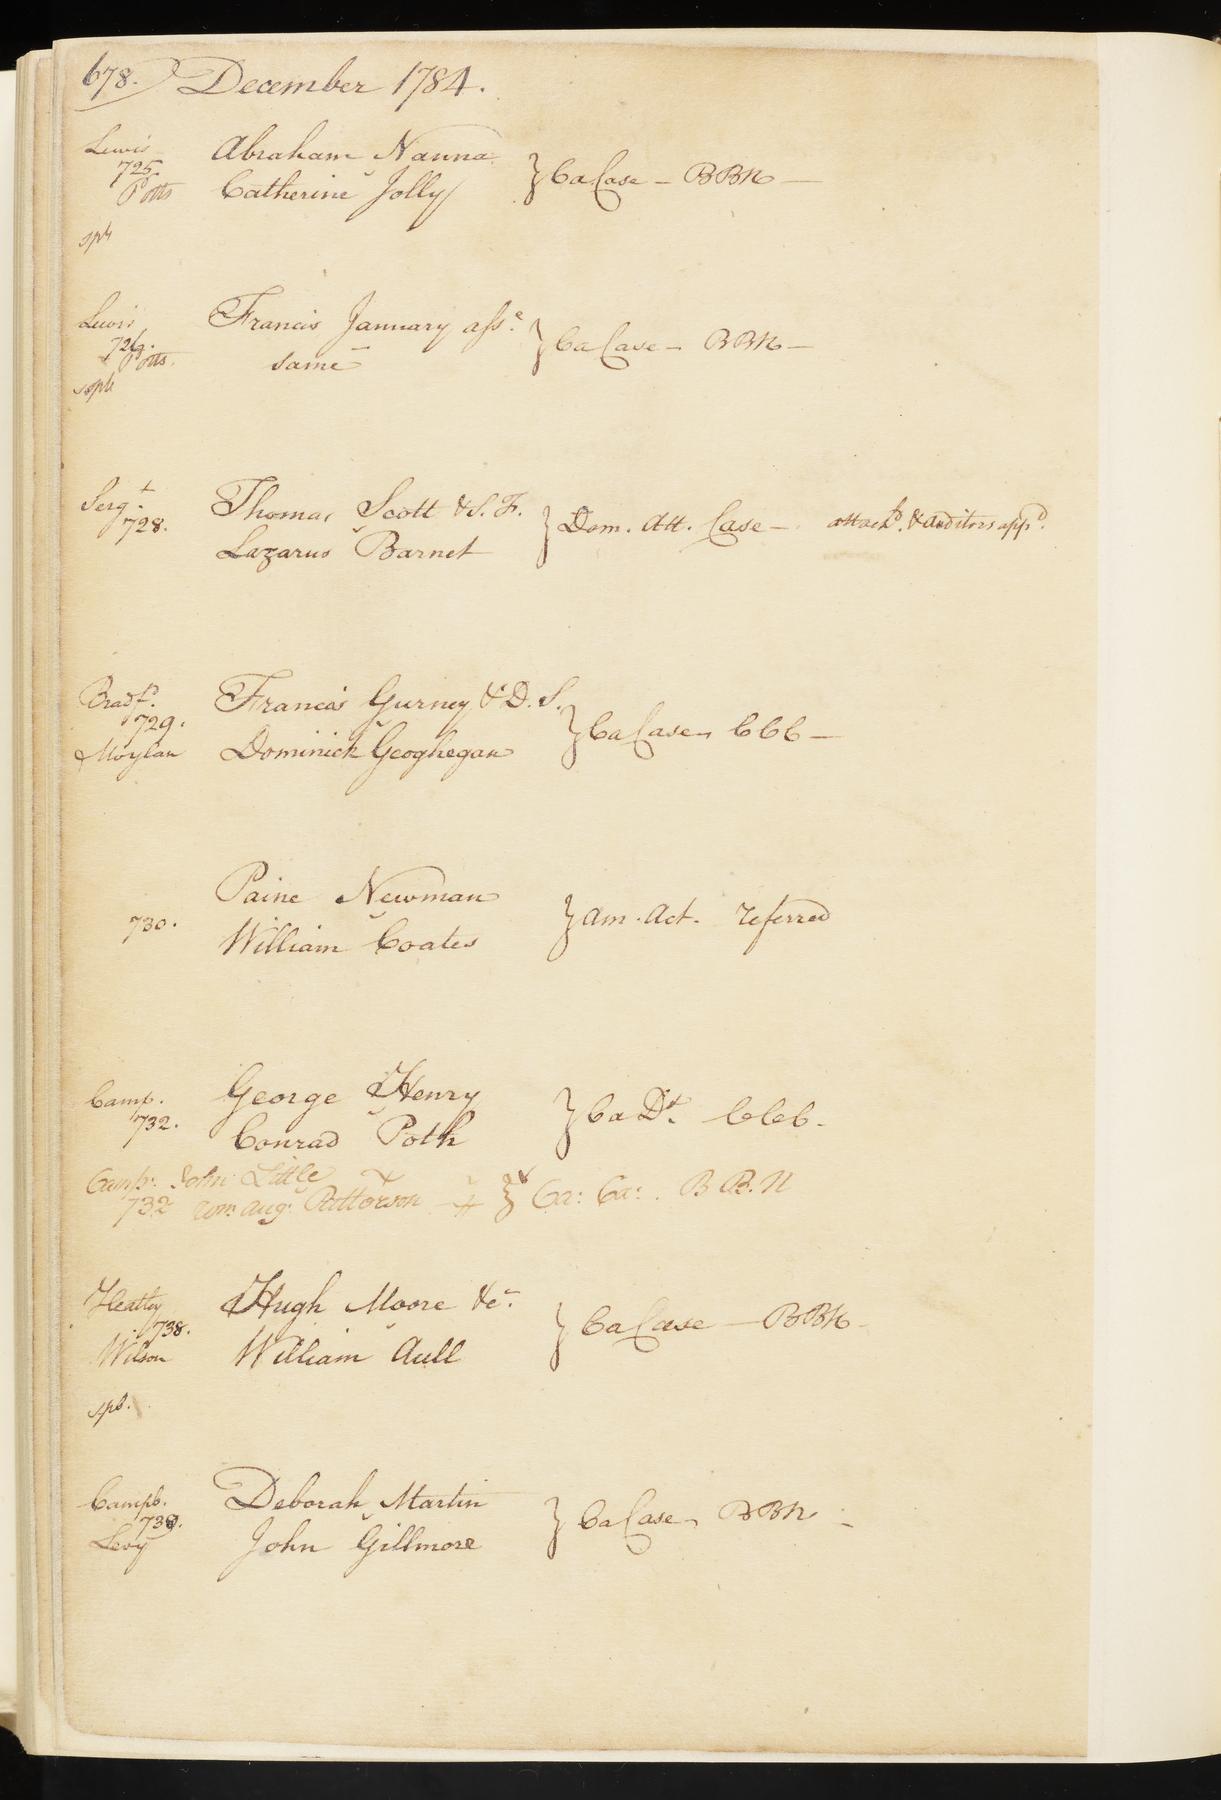 678. December 1784.
Lewis Abraham Nanna
725. } Ca Case – BBN –
Potts Catherine Jolly
spb
Lewis Francis January asse.
726. } Ca Case – BBN –
Potts same
spb
Sergt. Thomas Scott & S. F.
728. } Dom. Att. Case – attachd. & auditors appd.
Lazarus Barnet
Bradfd. Francis Gurney & D. S.
729. } Ca Case – CCC –
Moylan Dominick Geoghegan
Paine Newman
730. } Am. Act. referred
William Coates
Camp. George Henry
732. } Ca Dt. CCC.
Conrad Poth
Camp. John Little
732 Wm. Aug. Patterson } Ca: Ca: . B B. N
Heatley Hugh Moore &c.
738. } Ca Case – BBN –
Wilson William Aull
spb.
Campb. Deborah Martin
739. } Ca Case – BBN –
Levy John Gillmore